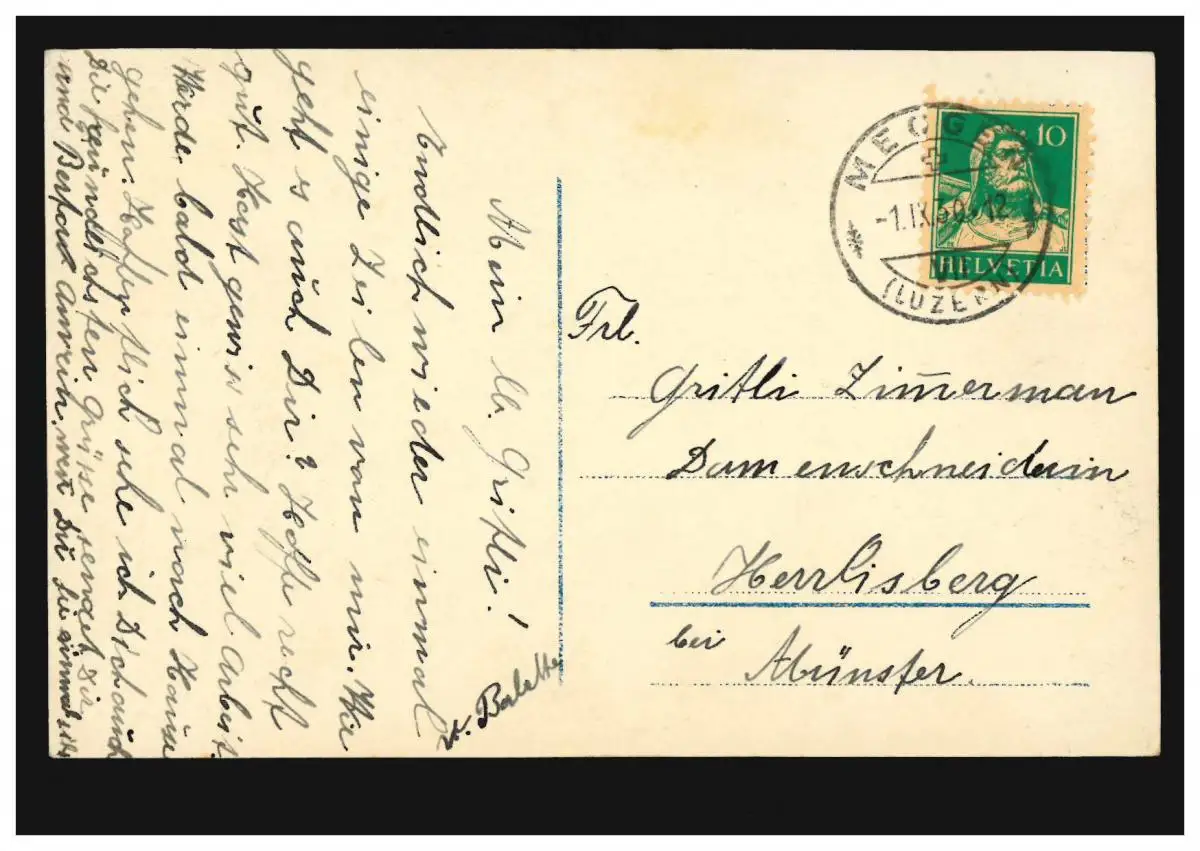 Mein lb. Gritli!
Endlich wieder einmal
einige Zeilen von mir. Wie
geht s auch Dir? Hoffe recht
gut. Hast gewiss sehr viel Arbeit.
Werde bald einmal nach Hause
gehen. Hoffentlich sehe ich Dich auch
Die freundlichsten Grüsse sendet Dir
und Amrein, wenn Du sie einmal
MEGGEN
-1.IX.30.-12
VII
(LUZERN)
10
HELVETIA
Frl.
Gritli Zim̅erman
Damenschneiderin
Herrlisberg
bei
Münster.